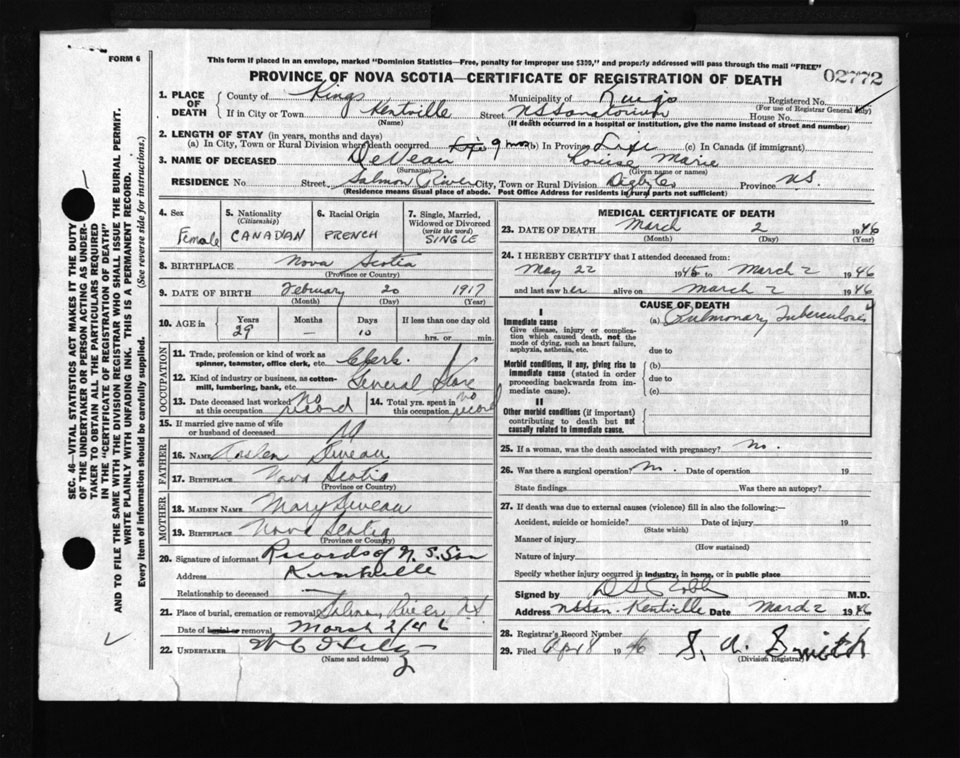 FORM 6
This form if placed in an envelope, marked "Dominion Statistics—Free, penalty for improper use $300," and properly addressed will pass through the mail "FREE"
PROVINCE OF NOVA SCOTIA—CERTIFICATE OF REGISTRATION OF DEATH
02772
1. PLACE OF DEATH
County of Kings Municipality of Kings Registered No.
(For use of Registrar General Only)
If in City or Town Kentville Street NS Sanatorium House No.
(Name) (If death occurred in a hospital or institution, give the name instead of street and number)
2. LENGTH OF STAY (in years, months and days)
(a) In City, Town or Rural Division where death occurred 9 mos (b) In Province Life (c) In Canada (if immigrant)
3. NAME OF DECEASED DeVeau Louise Marie
(Surname) (Given name or names)
RESIDENCE No. Street Salmon River City, Town or Rural Division Digby Co Province N.S.
(Residence means usual place of abode. Post Office Address for residents in rural parts not sufficient)
SEC. 46—VITAL STATISTICS ACT MAKES IT THE DUTY
OF THE UNDERTAKER OR PERSON ACTING AS UNDER-
TAKER TO OBTAIN ALL THE PARTICULARS REQUIRED
IN THE "CERTIFICATE OF REGISTRATION OF DEATH"
AND TO FILE THE SAME WITH THE DIVISION REGISTRAR WHO SHALL ISSUE THE BURIAL PERMIT.
WRITE PLAINLY WITH UNFADING INK. THIS IS A PERMANENT RECORD.
Every item of information should be carefully supplied. (See reverse side for instructions.)
4. Sex
Female
5. Nationality
(Citizenship)
CANADIAN
6. Racial Origin
FRENCH
7. Single, Married,
Widowed or Divorced
(write the word)
SINGLE
8. BIRTHPLACE Nova Scotia
(Province or Country)
9. DATE OF BIRTH February 20 1917
(Month) (Day) (Year)
10. AGE in
Years Months Days If less than one day old
29 — 10 hrs. or min.
OCCUPATION
11. Trade, profession or kind of work as
spinner, teamster, office clerk, etc. Clerk.
12. Kind of industry or business, as cotten-
mill, lumbering, bank, etc. General Store
13. Date deceased last worked
at this occupation No record
14. Total yrs. spent in
this occupation no record
15. If married give name of wife
or husband of deceased
FATHER
16. NAME Deveau
17. BIRTHPLACE Nova Scotia
(Province or Country)
MOTHER
18. MAIDEN NAME Mary Deveau
19. BIRTHPLACE Nova Scotia
(Province or Country)
20. Signature of informant Records of N. S. San
Address Kentville
Relationship to deceased —
21. Place of burial, cremation or removal Salmon River NS
Date of burial or removal March 2/46
22. UNDERTAKER
(Name and address)
MEDICAL CERTIFICATE OF DEATH
23. DATE OF DEATH March 2 1946
(Month) (Day) (Year)
24. I HEREBY CERTIFY that I attended deceased from:
May 22 1945 to March 2 1946
and last saw her alive on March 2 1946
CAUSE OF DEATH
I
Immediate cause
Give disease, injury or complica-
tion which caused death, not the
mode of dying, such as heart failure,
asphyxia, asthenia, etc.
(a) Pulmonary Tuberculosis
due to
Morbid conditions, if any, giving rise to
immediate cause (stated in order
proceeding backwards from im-
mediate cause).
(b)
due to
(c)
II
Other morbid conditions (if important)
contributing to death but not
causally related to immediate cause.
25. If a woman, was the death associated with pregnancy? No.
26. Was there a surgical operation? No. Date of operation 19
State findings Was there an autopsy?
27. If death was due to external causes (violence) fill in also the following:—
Accident, suicide or homicide? Date of injury 19
(State which)
Manner of injury
(How sustained)
Nature of injury
Specify whether injury occurred in industry, in home, or in public place
Signed by D S Robb M.D.
Address NS San. Kentville Date March 2 1946
28. Registrar's Record Number
29. Filed Apr 8 1946 S. A. Smith
(Division Registrar)